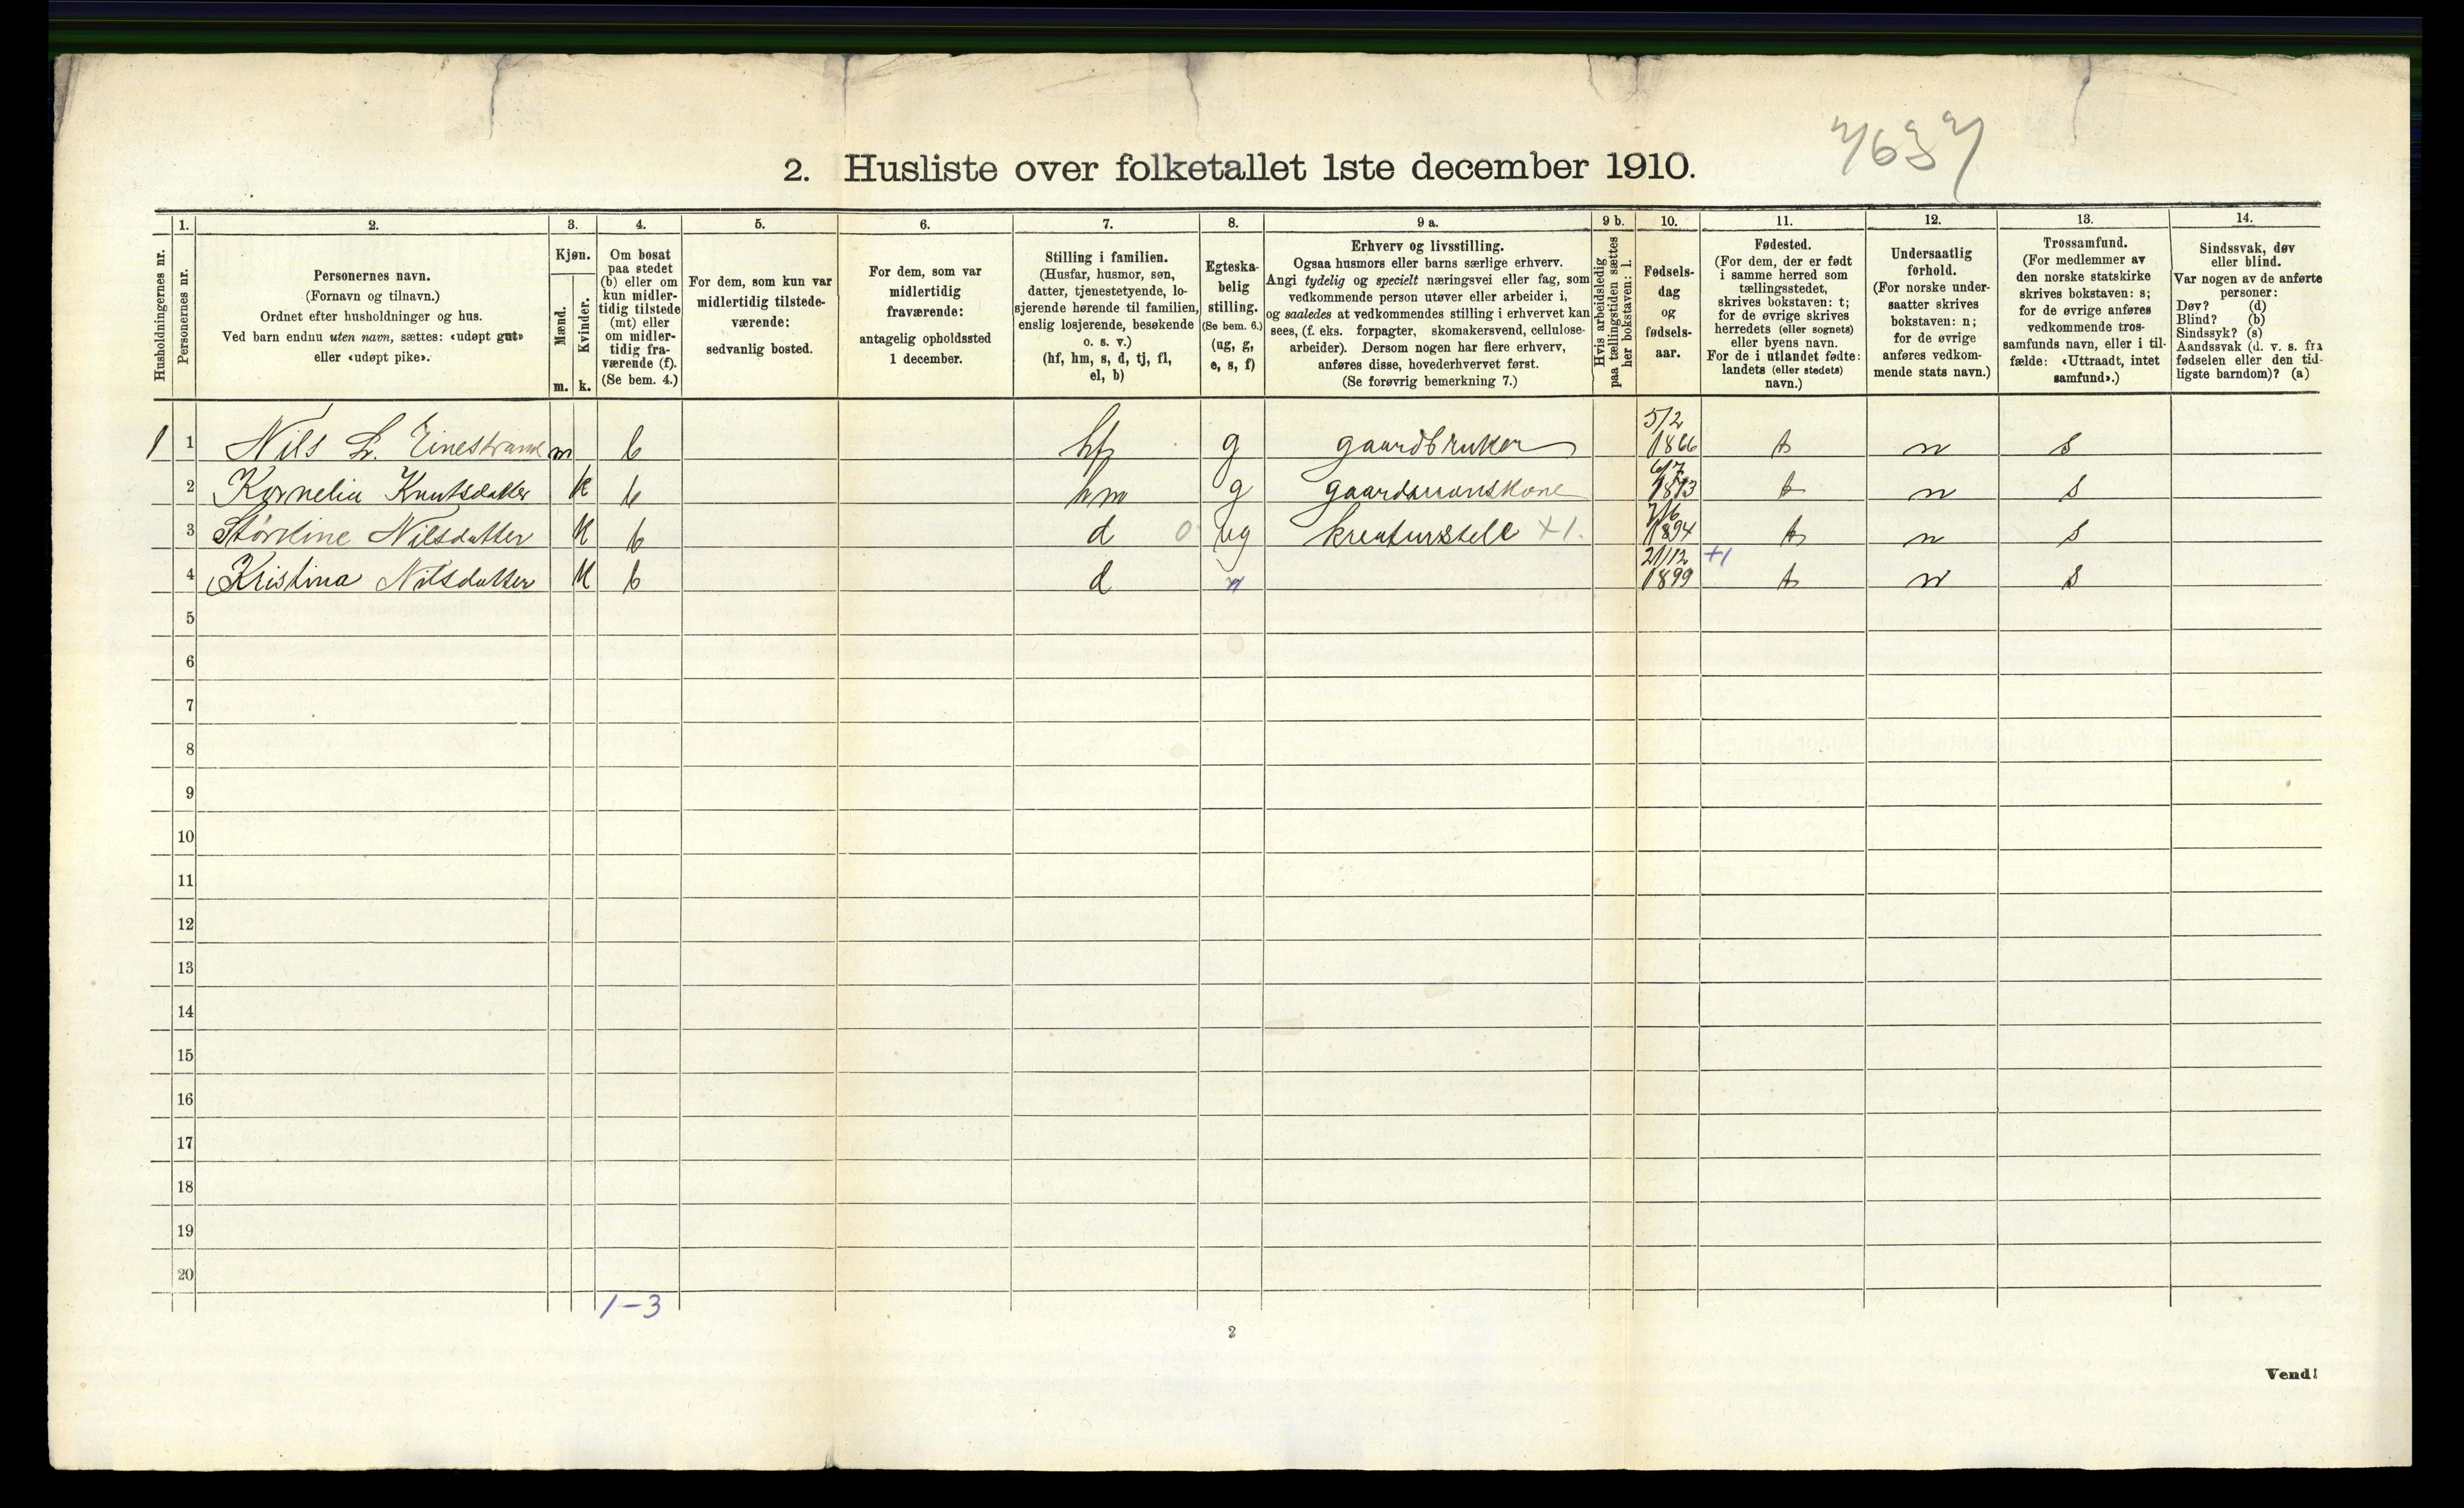 7637
2. Husliste over folketallet 1ste december 1910.
Husholdningernes nr.
1. Personernes nr.
2. Personernes navn.
(Fornavn og tilnavn.)
Ordnet efter husholdninger og hus.
Ved barn endnu uten navn, sættes: «udøpt gut»
eller «udøpt pike».
3. Kjøn.
Mænd. m.
Kvinder. k.
4. Om bosat
paa stedet
(b) eller om
kun midler-
tidig tilstede
(mt) eller
om midler-
tidig fra-
værende (f).
(Se bem. 4.)
5. For dem, som kun var
midlertidig tilstede-
værende:
sedvanlig bosted.
6. For dem, som var
midlertidig
fraværende:
antagelig opholdssted
1 december.
7. Stilling i familien.
(Husfar, husmor, søn,
datter, tjenestetyende, lo-
sjerende hørende til familien,
enslig losjerende, besøkende
o. s. v.)
(hf, hm, s, d, tj, fl,
el, b)
8. Egteska-
belig
stilling.
(Se bem. 6.)
(ug, g,
e, s, f)
9 a. Erhverv og livsstilling.
Ogsaa husmors eller barns særlige erhverv.
Angi tydelig og specielt næringsvei eller fag, som
vedkommende person utøver eller arbeider i,
og saaledes at vedkommendes stilling i erhvervet kan
sees, (f. eks. forpagter, skomakersvend, cellulose-
arbeider). Dersom nogen har flere erhverv,
anføres disse, hovederhvervet først.
(Se forøvrig bemerkning 7.)
9 b. Hvis arbeidsledig
paa tællingstiden sættes
her bokstaven: l.
10. Fødsels-
dag
og
fødsels-
aar.
11. Fødested.
(For dem, der er født
i samme herred som
tællingsstedet,
skrives bokstaven: t;
for de øvrige skrives
herredets (eller sognets)
eller byens navn.
For de i utlandet fødte:
landets (eller stedets)
navn.)
12. Undersaatlig
forhold.
(For norske under-
saatter skrives
bokstaven: n;
for de øvrige
anføres vedkom-
mende stats navn.)
13. Trossamfund.
(For medlemmer av
den norske statskirke
skrives bokstaven: s;
for de øvrige anføres
vedkommende tros-
samfunds navn, eller i til-
fælde: «Uttraadt, intet
samfund».)
14. Sindssvak, døv
eller blind.
Var nogen av de anførte
personer:
Døv? (d)
Blind? (b)
Sindssyk? (s)
Aandssvak (d. v. s. fra
fødselen eller den tid-
ligste barndom)? (a)
1 1 Nils L. Einestrand m b hf g gaardbruker 5/2 1866 t n s
2 Kornelia Knutsdatter k b hm g gaardmanskone 6/7 1873 t n s
3 Størkine Nilsdatter k b d 0 ug kreaturstell +1. 7/6 1894 t n s
4 Kristina Nilsdatter k b d 21/12 1899 +1 t n s
5
6
7
8
9
10
11
12
13
14
15
16
17
18
19
20
1-3
2
Vend!